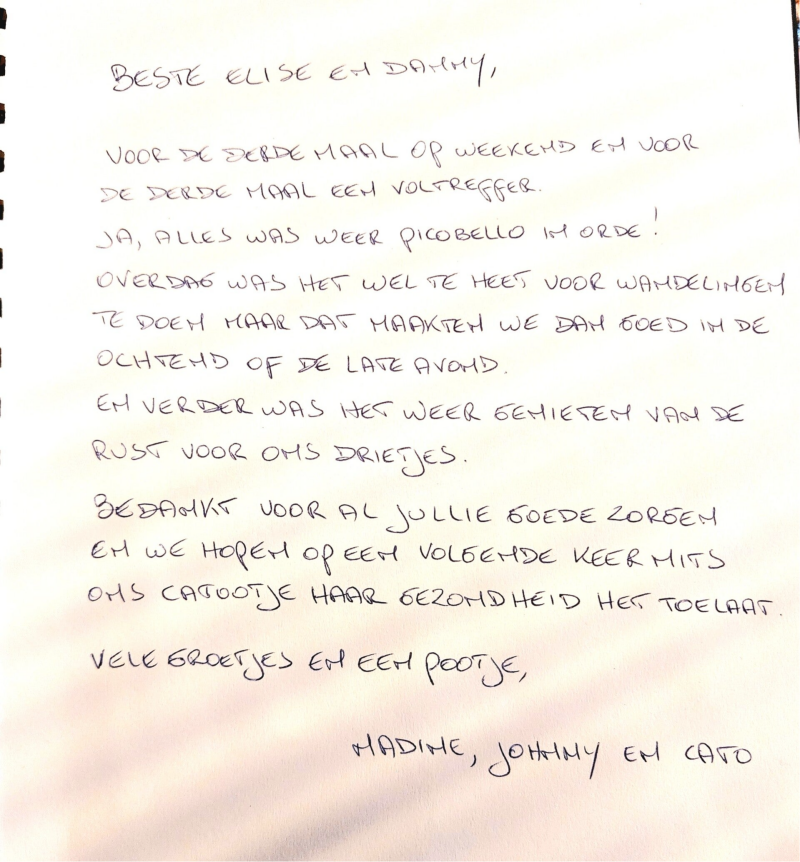 BESTE ELISE EN DANNY,
VOOR DE DERDE MAAL OP WEEKEND EN VOOR
DE DERDE MAAL EEN VOLTREFFER.
JA, ALLES WAS WEER PICOBELLO IN ORDE!
OVERDAG WAS HET WEL TE HEET VOOR WANDELINGEN
TE DOEN MAAR DAT MAAKTEN WE DAN GOED IN DE
OCHTEND OF DE LATE AVOND.
EN VERDER WAS HET WEER GENIETEN VAN DE
RUST VOOR ONS DRIETJES.
BEDANKT VOOR AL JULLIE GOEDE ZORGEN
EN WE HOPEN OP EEN VOLGENDE KEER MITS
ONS CATOOTJE HAAR GEZONDHEID HET TOELAAT.
VELE GROETJES EN EEN POOTJE,
NADINE, JOHNNY EN CATO